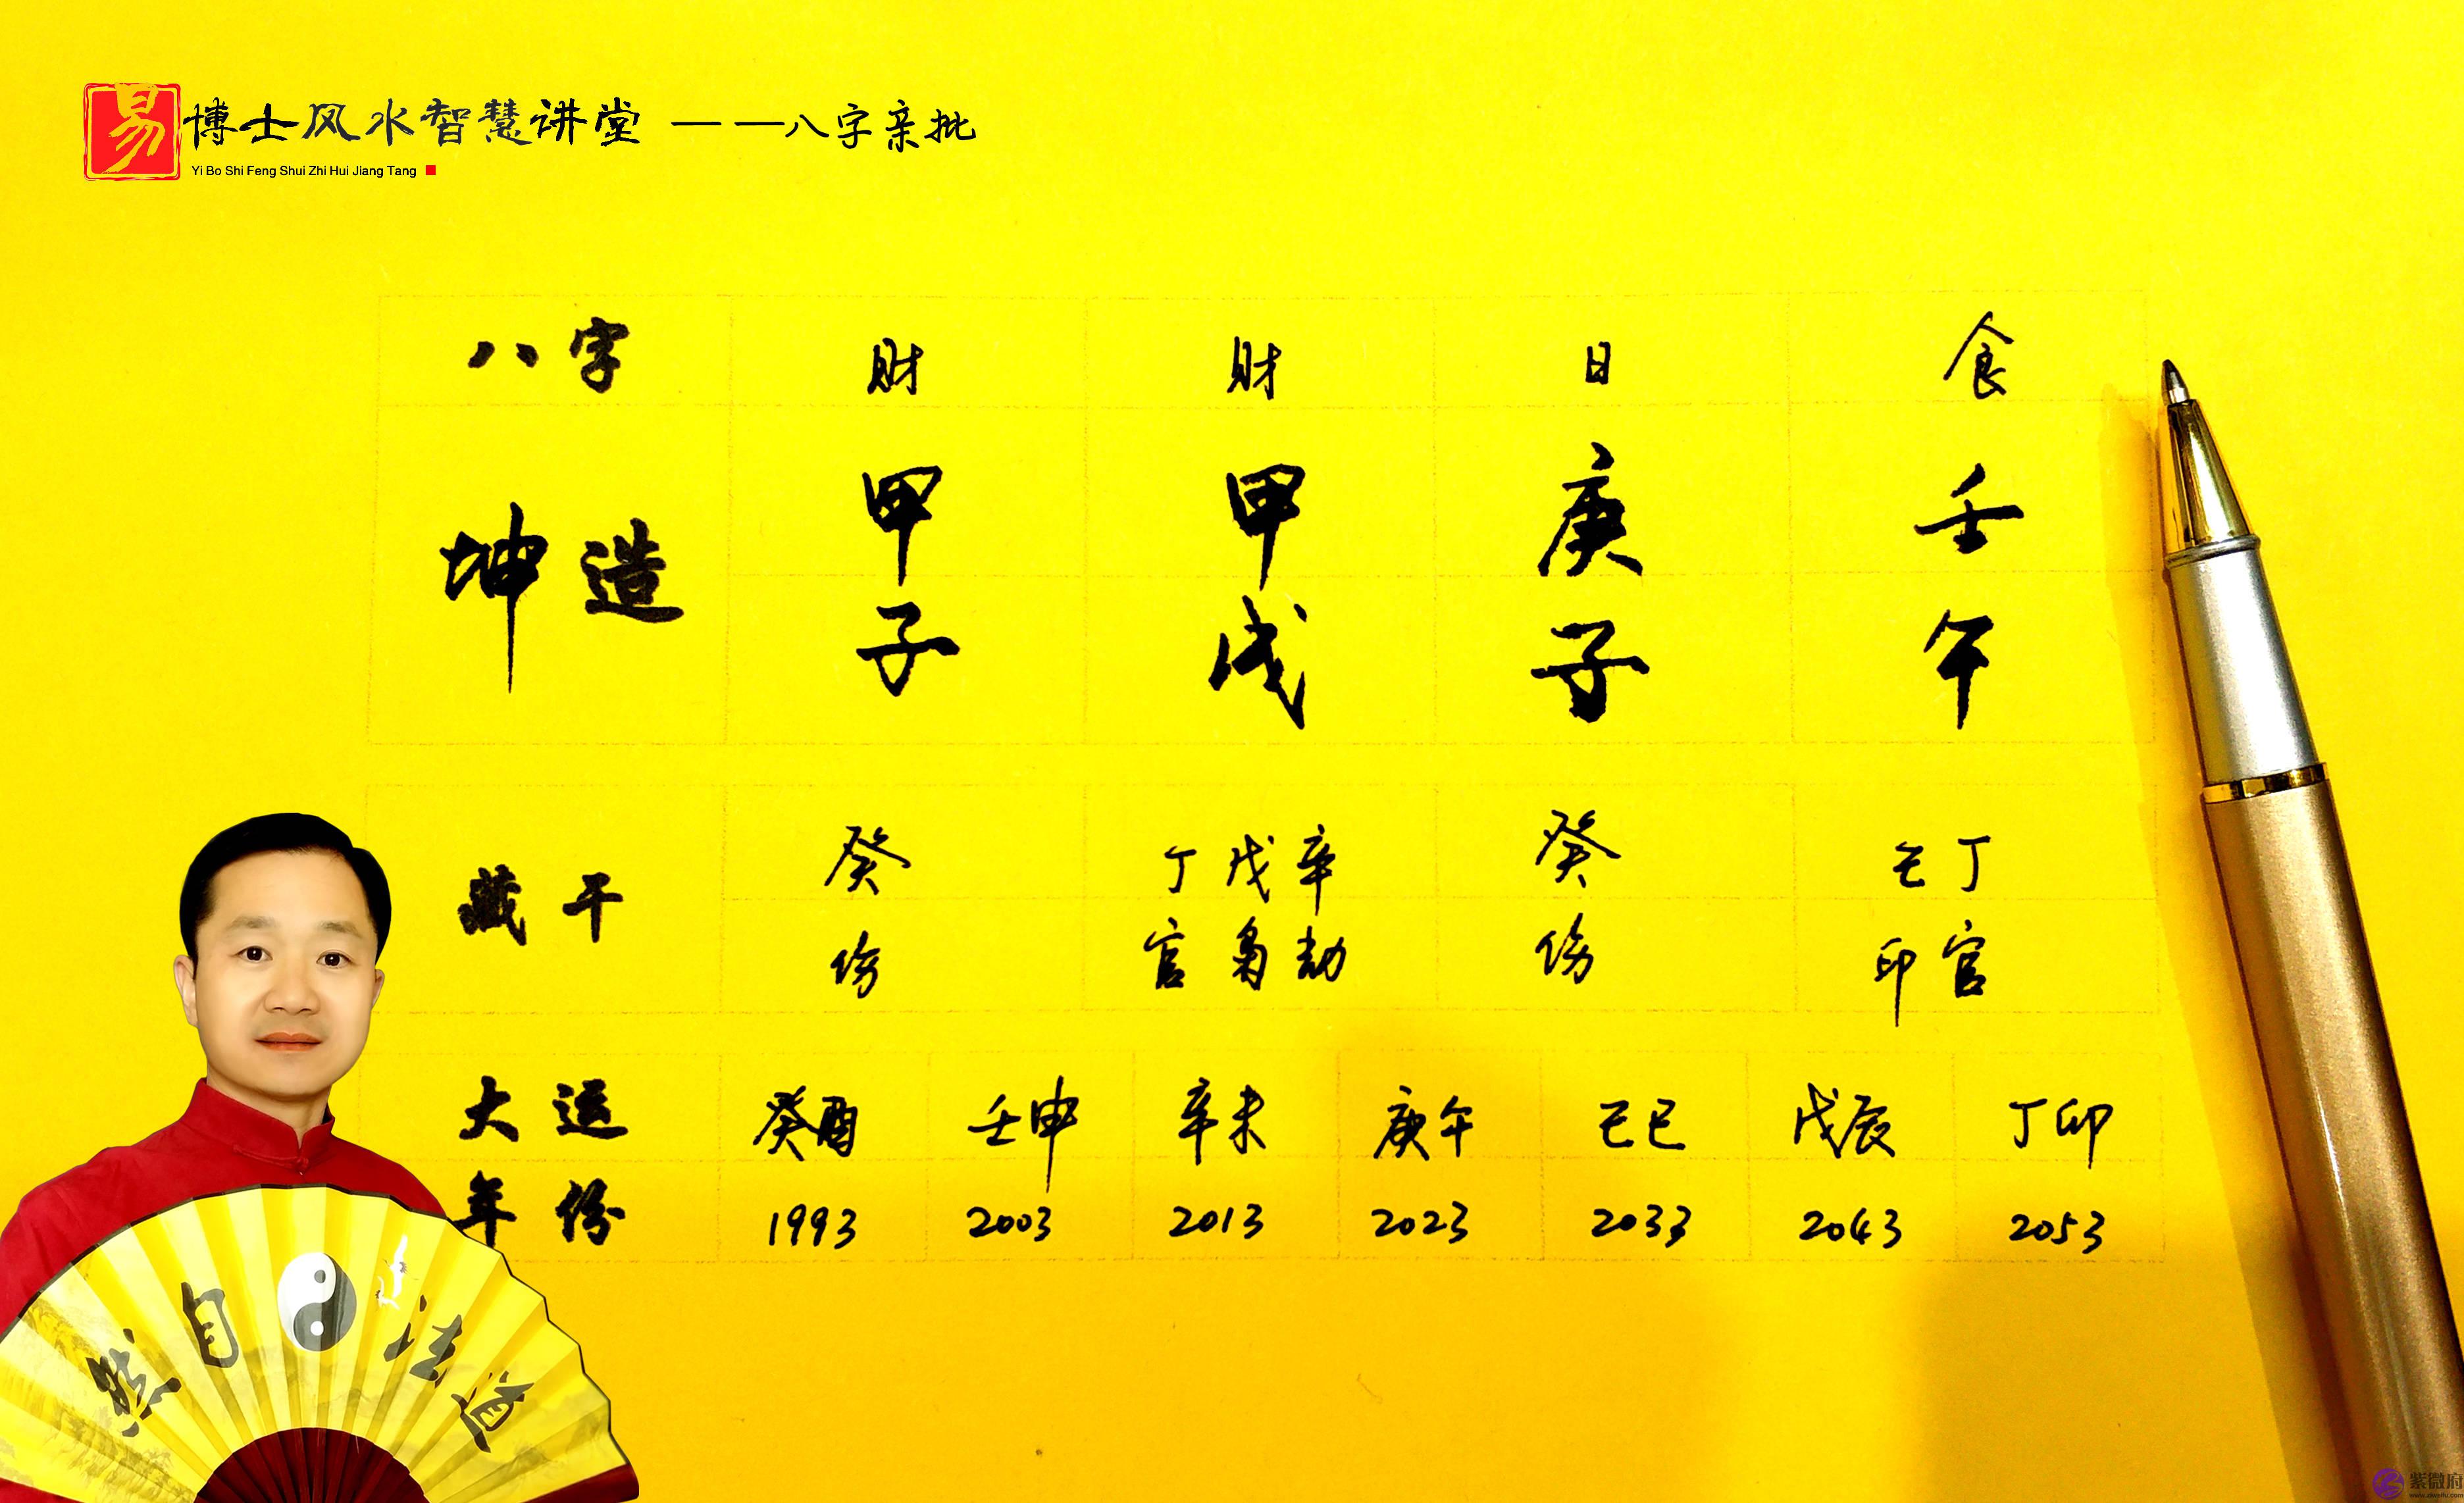 易博士风水智慧讲堂 ——八字亲批
Yi Bo Shi Feng Shui Zhi Hui Jiang Tang
八字 财 财 日 食
坤造 甲 甲 庚 壬
子 戌 子 午
藏干 癸 丁戊辛 癸 己丁
伤 官枭劫 伤 印官
大运 癸酉 壬申 辛未 庚午 己巳 戊辰 丁卯
年份 1993 2003 2013 2023 2033 2043 2053
然自法道
紫微府